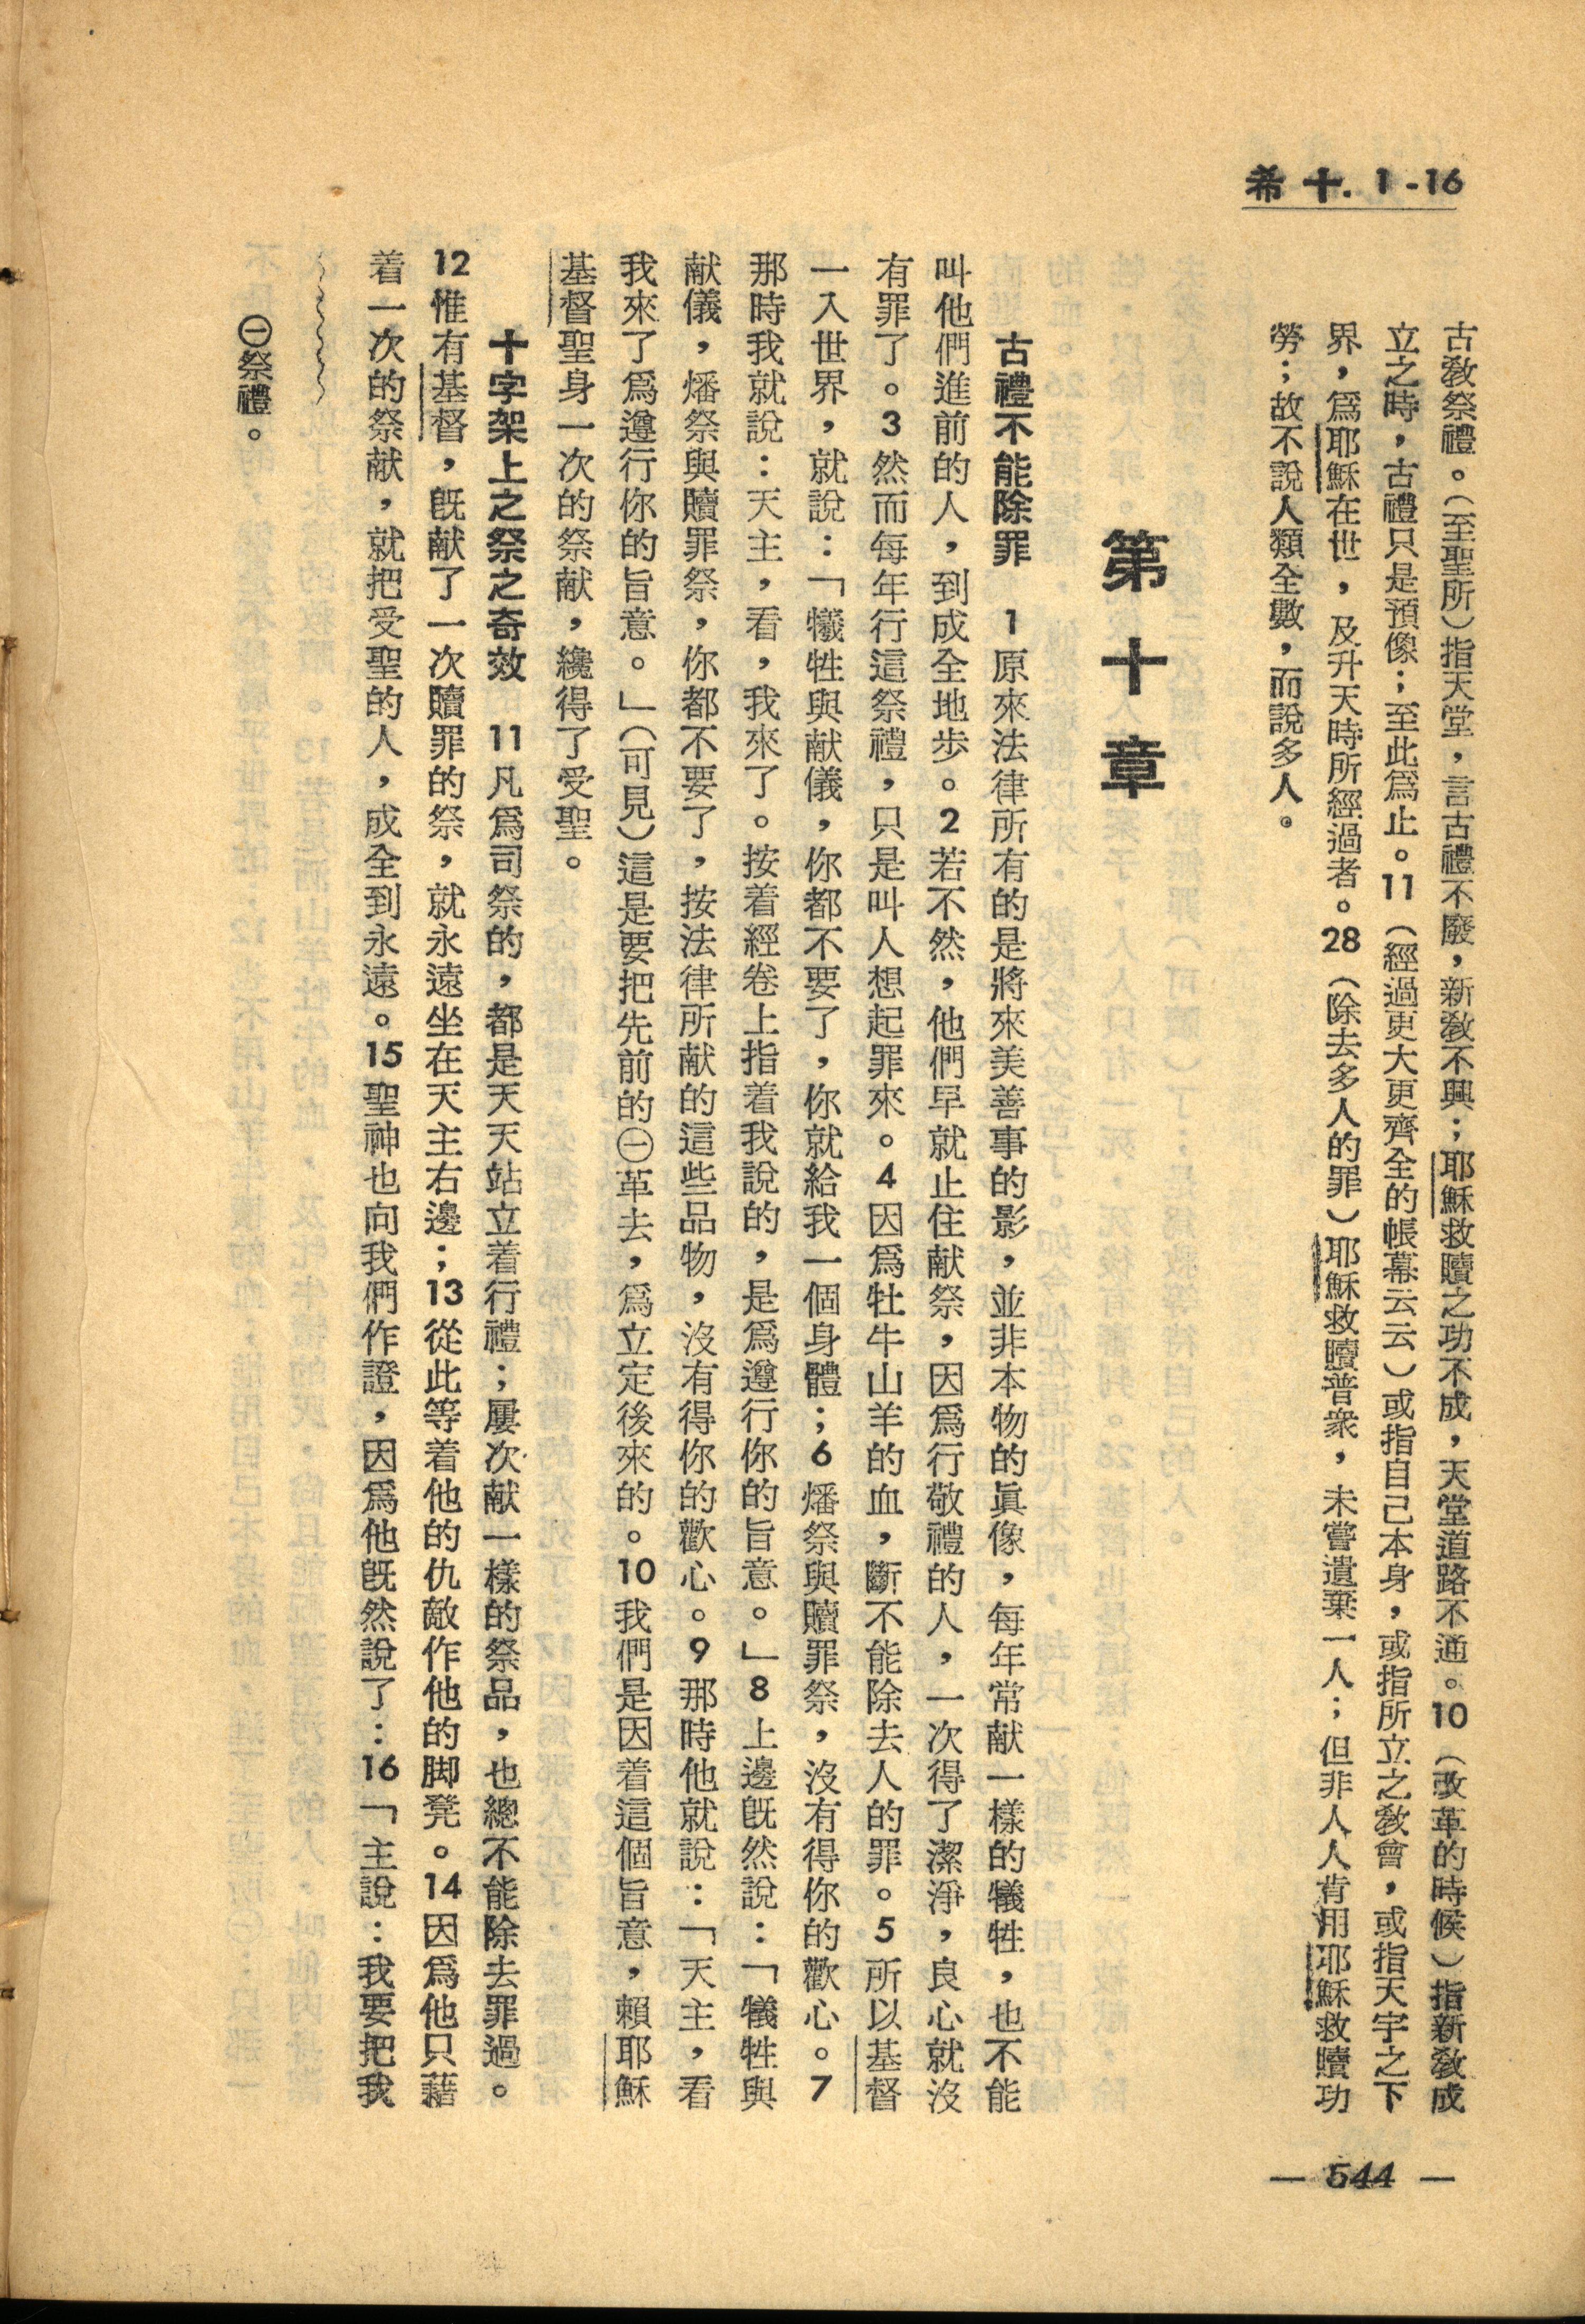 希十. 1-16
古教祭禮。（至聖所）指天堂，言古禮不廢，新教不興；耶穌救贖之功不成，天堂道路不通。10（改革的時候）指新教成
立之時，古禮只是預像；至此爲止。11（經過更大更齊全的帳幕云云）或指自己本身，或指所立之教會，或指天宇之下
界，爲耶穌在世，及升天時所經過者。28（除去多人的罪）耶穌救贖普衆，未嘗遺棄一人；但非人人肯用耶穌救贖功
勞；故不說人類全數，而說多人。
第十章
古禮不能除罪　1原來法律所有的是將來美善事的影，並非本物的眞像，每年常献一樣的犧牲，也不能
叫他們進前的人，到成全地步。2若不然，他們早就止住献祭，因爲行敬禮的人，一次得了潔淨，良心就沒
有罪了。3然而每年行這祭禮，只是叫人想起罪來。4因爲牡牛山羊的血，斷不能除去人的罪。5所以基督
一入世界，就說：「犧牲與献儀，你都不要了，你就給我一個身體；6燔祭與贖罪祭，沒有得你的歡心。7
那時我就說：天主，看，我來了。按着經卷上指着我說的，是爲遵行你的旨意。」8上邊旣然說：「犧牲與
献儀，燔祭與贖罪祭，你都不要了，按法律所献的這些品物，沒有得你的歡心。9那時他就說：「天主，看
我來了爲遵行你的旨意。」（可見）這是要把先前的㊀革去，爲立定後來的。10我們是因着這個旨意，賴耶穌
基督聖身一次的祭献，纔得了受聖。
十字架上之祭之奇效　11凡爲司祭的，都是天天站立着行禮；屢次献一樣的祭品，也總不能除去罪過。
12惟有基督，旣献了一次贖罪的祭，就永遠坐在天主右邊；13從此等着他的仇敵作他的脚凳。14因爲他只藉
着一次的祭献，就把受聖的人，成全到永遠。15聖神也向我們作證，因爲他旣然說了：16「主說：我要把我
㊀祭禮。
— 544 —